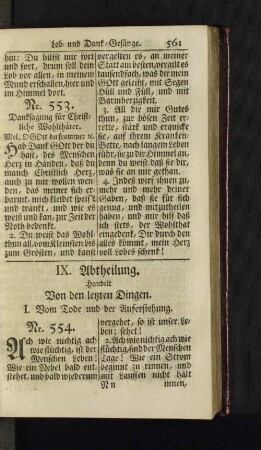 Lob- und Dank-Gesänge. 561
hin: Du hilfst mir fort
und fort, drum soll dein
Lob vor allen, in meinem
Mund erschallen, hier und
im Himmel dort.
Nr. 553.
Danksagung für Christ-
liche Wohlthäter.
Mel. O GOtt du frommer ꝛc.
Hab Dank GOtt der du
hast, des Menschen
Herz in Händen, daß du
manch Christlich Herz,
auch zu mir wollen wen-
den, das meiner sich er-
barmt, mich kleidt, speist
und tränkt, und wie es
weiß und kan, zur Zeit der
Noth bedenkt.
2. Du weist das Wohl-
thun all, vom Kleinsten bis
zum Grösten, und kanst
vergelten es, an meiner
Statt am besten, vergilt es
tausendfach, was dir mein
GOtt geleiht, mit Segen
Hüll und Füll, und mit
Barmherzigkeit.
3. All die mir Gutes
thun, zur bösen Zeit er-
rette, stärk und erquicke
sie, auf ihrem Kranken-
Bette, nach langem Leben
führ, sie zu dir Himmel an,
denn du weist daß sie dir,
was sie an mir gethan.
4. Indeß wirf ihnen zu,
mehr und mehr deiner
Gaben, daß sie für sich
genug, und mitzutheilen
haben, und mir hilf daß
ich stets, der Wohlthat
eingedenk, Dir durch den
alles kommt, mein Herz
voll Lobes schenk!
IX. Abtheilung.
Handelt
Von den letzten Dingen.
I. Vom Tode und der Auferstehung.
Nr. 554.
Ach wie nichtig ach
wie flüchtig, ist der
Menschen Leben!
Wie ein Nebel bald ent-
stehet, und bald wiederum
vergehet, so ist unser Le-
ben; sehet!
2. Ach wie nichtig ach wie
flüchtig, sind der Menschen
Tage! Wie ein Strom
beginnt zu rinnen, und
mit Lauffen nicht hält
N n innen,